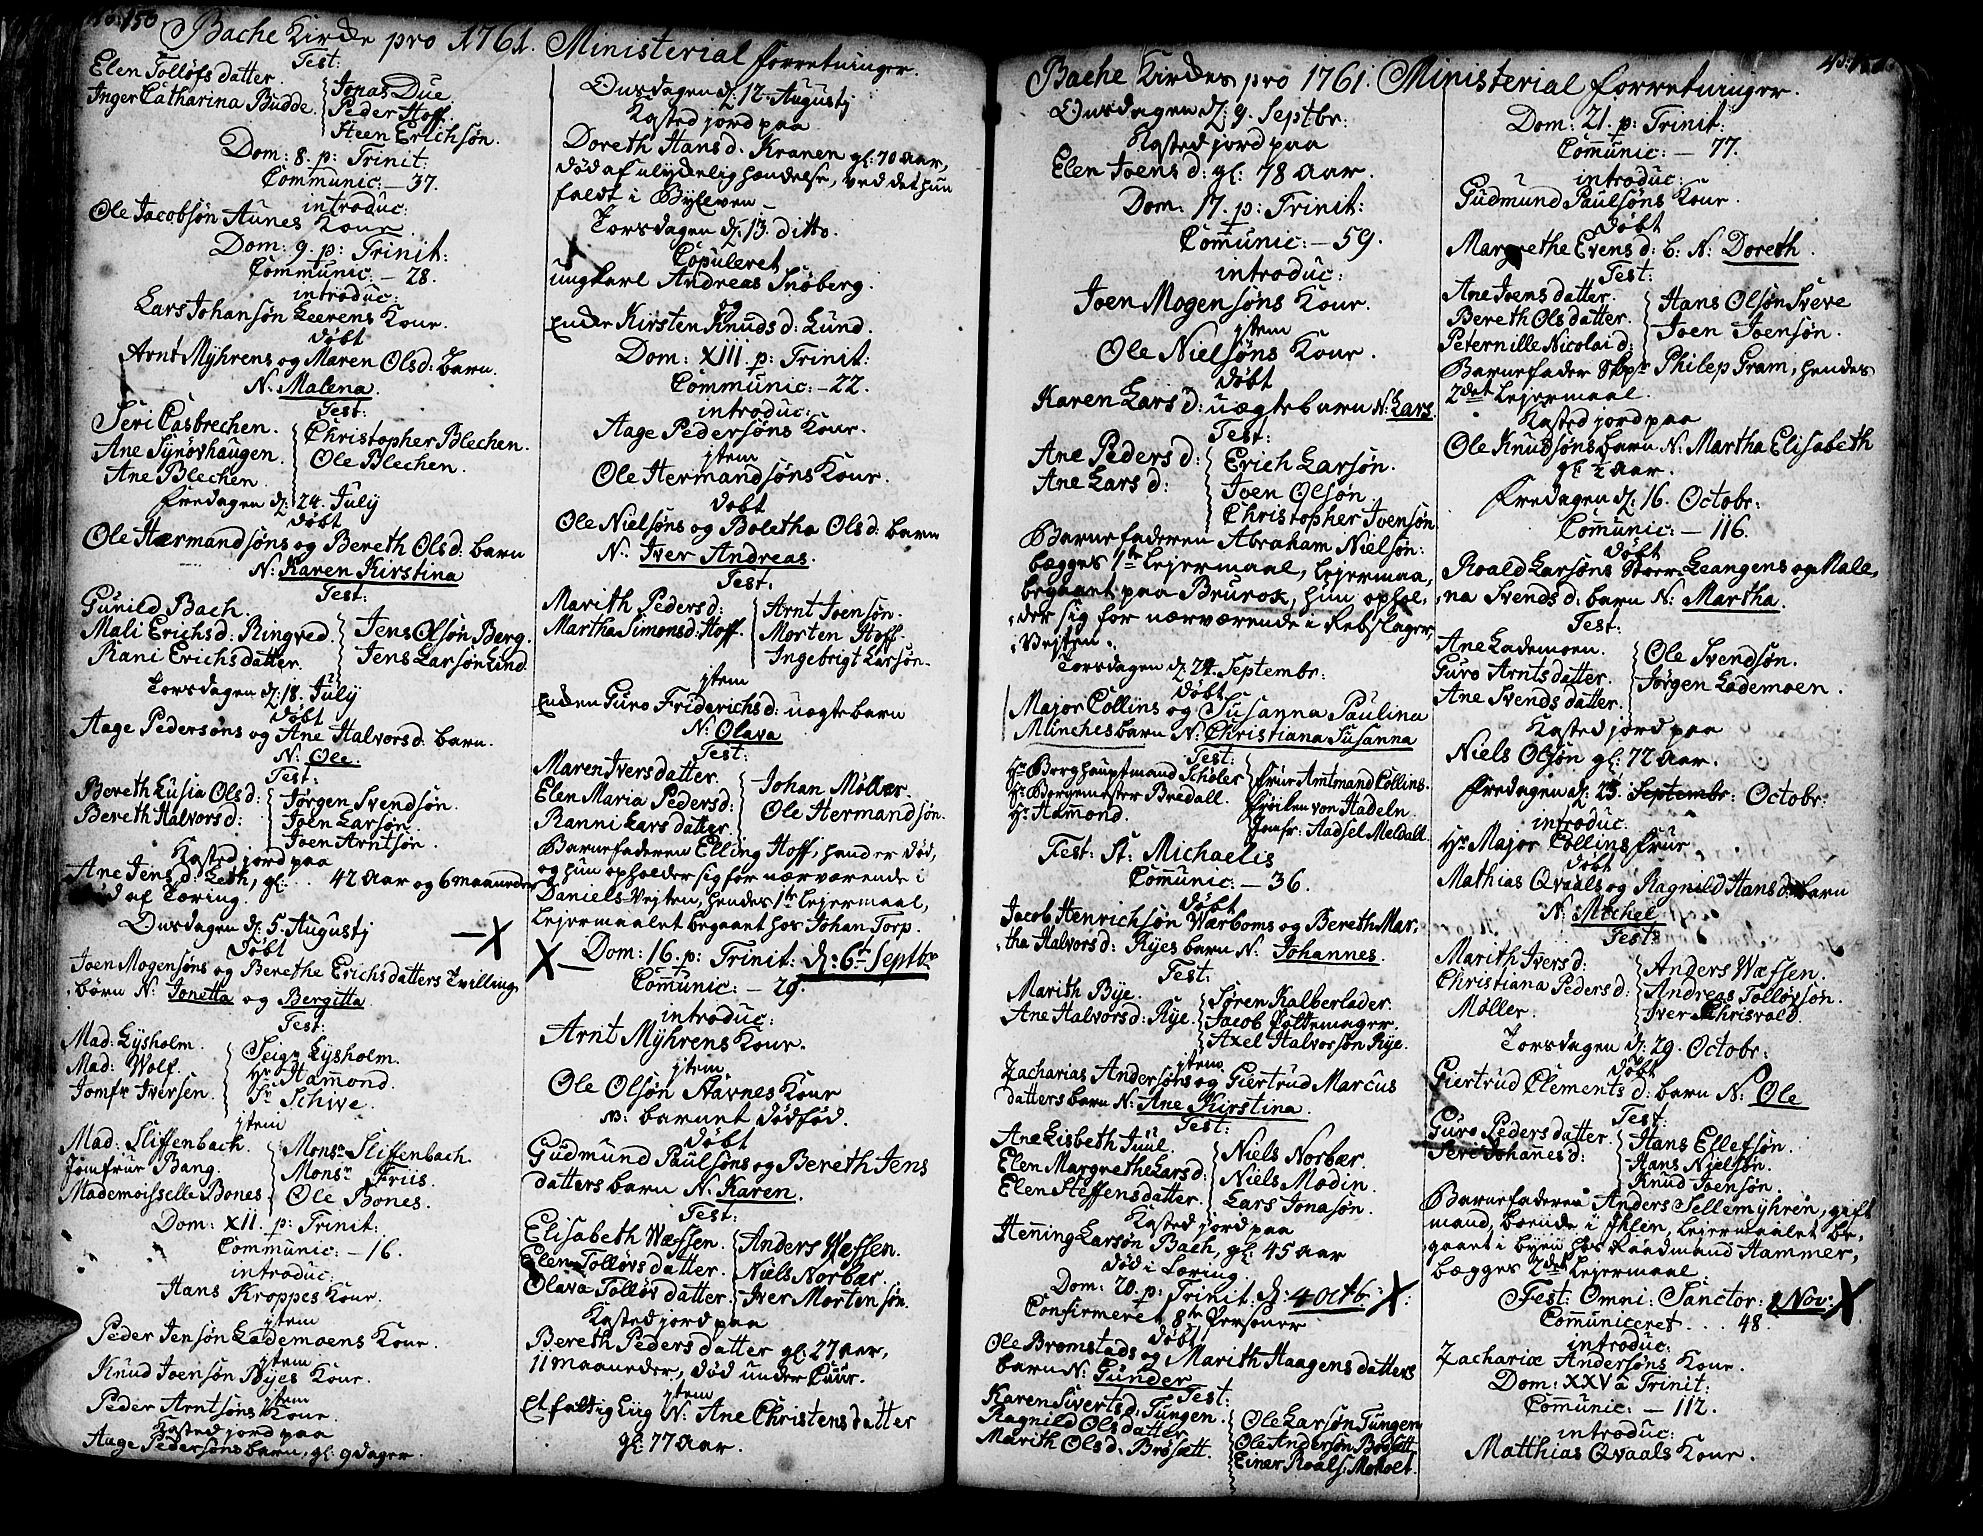 150
Bache Kirke pro 1761. Ministerial forretninger.
Test:
Elen Tolløfsdatter. Jonas Due
Inger Catharina Budde. Peder Hoff.
Steen Erichsøn.
Dom: 8. p: Trinit:
Communic: — 37.
introduc:
Ole Jacobsøn Aunes Kone.
Dom: 9. p: Trinit:
Communic: — 28.
introduc:
Lars Johansøn Leerens Kone.
døbt
Arnt Myhrens og Maren Olsd: barn.
N: Malena.
Test:
Seri Casbrechen. Christopher Blechen.
Ane Synøvhaugen. Ole Blechen.
Ane Blechen.
Fredagen d: 24. July
døbt
Ole Hærmandsøns og Bereth Olsd: barn
N: Karen Kirstina
Test:
Gunild Bach. Jens Olsøn Berg.
Mali Erichsd: Ringved. Jens Larsøn Lind.
Rani Erichsdatter.
Torsdagen d: 18. July
døbt
Aage Pedersøns og Ane Halvorsd: barn.
N: Ole.
Test:
Bereth Lusia Olsd: Jørgen Svendsøn.
Bereth Halvorsd: Joen Larsøn.
Joen Arntsøn.
Kasted jord paa
Ane Jensd: Leth, gl: . . 42 Aar og 6 maaneder
død af Tæring.
Onsdagen d: 5. Augustj
døbt —X
Joen Mogensøns og Berethe Erichsdatters Tvilling,
børn N: Jonetta og Bergitta
Test:
Mad: Lysholm. Seigr Lysholm.
Mad: Wolf. Hr Hammond.
Jomfr Iversen. Sr Schive.
jtem
Mad: Sliffenbach. Monsr Sliffenbach.
Jomfrue Bang. Monsr Friis.
Mademoisselle Bones. Ole Bones.
Dom: XII. p: Trinit:
Communic: — 16.
introduc:
Hans Kroppes Kone.
jtem
Peder Jensøn Lademoens Kone.
jtem
Knud Joensøn Byes Kone.
jtem
Peder Arntsøns Kone.
Kasted jord paa
Aage Pedersøns barn, gl: 9 dager.
Onsdagen d: 12. Augustj
Kasted jord paa
Doreth Hansd: Kranen gl: 70 aar,
død af ulykkelig hændelse, ved det hun
faldt i Byleven —
Torsdagen d: 13. ditto.
Copuleret
ungkarl Andreas Snøberg.
og
Enke Kirsten Knudsd: Lund.
Dom: XIII. p: Trinit:
Communic: — 22.
introduc:
Aage Pedersøns Kone.
jtem
Ole Hermandsøns Kone.
døbt
Ole Nielsøns og Boletha Olsd: barn
N: Iver Andreas.
Test:
Marith Pedersd: Arnt Joensøn.
Martha Simonsd: Hoff. Morten Hoff.
Ingebrigt Larsøn.
jtem
Enken Guro Friderichsd: uægte barn
N: Olava
Test:
Maren Iversdatter. Johan Møller.
Elen Maria Pedersd: Ole Hermandsøn.
Ranni Larsdatter.
Barnefaderen Elling Hoff, hand er død,
og hun opholder sig for nærværende i
Daniels-Vejten, hendes 1te Lejermaal,
Lejermaalet begaaet hos Johan Torp.
X— Dom: 16. p: Trinit: d: 6t Septbr
Comunic: — 29.
introduc:
Arnt Myhrens Kone.
jtem
Ole Olsøn Stavnes Kone
n: barnet dødfød.
døbt
Gudmund Paulsøns og Bereth Jens
datters barn N: Karen.
Test:
Elisabeth Wæssen. Anders Wæssen.
Elen Tolløvsdatter. Niels Norbær.
Olava Tolløvdatter. Iver Mortensøn.
Kasted jord paa
Bereth Pedersdatter gl: 27 aar,
11 maaneder, død under Cuur.
jtem
Et fattig Liig N: Ane Christensdatter
gl: 77 Aar.
Bache Kirkes pro 1761. Ministerial forretninger.
Onsdagen d: 9. Septbr:
Kasted jord paa
Elen Joensd: gl: 78 aar.
Dom: 17. p: Trinit:
Comunic: — 59.
introduc:
Joen Mogensøns Kone.
jtem
Ole Nielsøns Kone.
døbt
Karen Larsd: uægte barn N: Lars.
Test:
Ane Pedersd: Erich Larsøn.
Ane Larsd: Joen Olsøn.
Christopher Joensøn.
Barnefaderen Abraham Nielsøn:
begges 1te Lejermaal, Lejermaa,
begaaet paa Brurok, hun ophol,
der sig for nærværende i Rebslager,
Vejten.
Torsdagen d: 24. Septembr:
døbt
Major Collins og Susanna Paulina
Münches barn N: Christiana Susanna
Test:
Hr Berghauptmand Schøler Frue Amtmand Collins.
Hr Borgemester Bredall. Frøilen von Hadeln.
Hr Hammond. Jomfr: Aadsel Meldall.
Fest: St: Michaelis
Comunic: — 36.
døbt
Jacob Henrichsøn Wærboms og Bereth Mar,
tha Halvorsd: Ryes barn N: Johannes.
Test:
Marith Bye. Søren Kalberlader.
Ane Halvorsd: Rye. Jacob Pottemager.
Axel Halvorsøn Rye.
jtem
Zacharias Andersøns og Giertrud Marcus
datters barn N: Ane Kirstina.
Test:
Ane Lisbeth Juul Niels Norbær.
Elen Margrethe Larsd: Niels Modin.
Elen Steffensdatter. Lars Jonasøn.
Kasted jord paa
Hening Larsøn Bach, gl: 45 aar
død i Tæring.
Dom: 20. p: Trinit: d: 4 Octb: X:
Confirmeret 8te Personer
døbt
Ole Bromstads og Marith Haagensdatters
barn N: Gunder
Test:
Karen Sivertsd: Tungen. Ole Larsøn Tungen
Ragnild Olsdatter. Ole Andersøn Brøsætt
Marith Olsd: Brøsætt. Einer Roals: Moholt.
Dom: 21. p: Trinit:
Comunic: — 77.
introduc:
Gudmund Paulsøns Kone.
døbt
Margrethe Evensd: b: N: Doreth.
Test:
Ane Joensdatter. Hans Olsøn Sveve
Bereth Olsdatter. Joen Joensøn.
Peternille Nicolaid:
Barnefader Skpr Philep Gram, hendes
2det Lejermaal.
Kasted jord paa
Ole Knudsøns barn N: Martha Elisabeth
gl: ½ Aar.
Fredagen d: 16. Octobr:
Comunic: — 116.
døbt
Roald Larsøns Stoer-Leangens og Male,
na Svendsd: barn N: Martha.
Test:
Ane Lademoen. Ole Svendsøn.
Guro Arntsdatter. Jørgen Lademoen.
Ane Svendsdatter.
Kasted jord paa
Niels Olsøn gl: 72 Aar.
Fredagen d: 23. Septembr: Octobr:
introduc:
Hr Major Collins Frue
døbt
Mathias Qvaals og Ragnild Hansd: barn
N: Michel
Test:
Marith Iversd: Anders Wæssen.
Christiana Pedersd: Andreas Tolløvsøn.
Møller. Iver Chrisvold.
Torsdagen d: 29. Octobr:
døbt
Giertrud Clementsd: barn N: Ole
Test:
Guro Pedersdatter. Hans Ellefsøn.
Seri Johanesd: Hans Nielsøn.
Knud Joensøn.
Barnefaderen Anders Sellemyhren, gift
mand, boende i Ihlen, Lejermaalet be,
gaaet i byen hos Raadmand Hammer,
begges 2det Lejermaal
Fest: Omni: Sanctor: 1 Nov: X
Communiceret . . . 48.
introduc:
Zachariæ Andersøns Kone.
Dom: XXV à Trinit:
Comunic: — 112.
introduc:
Matthias Qvaals Kone.